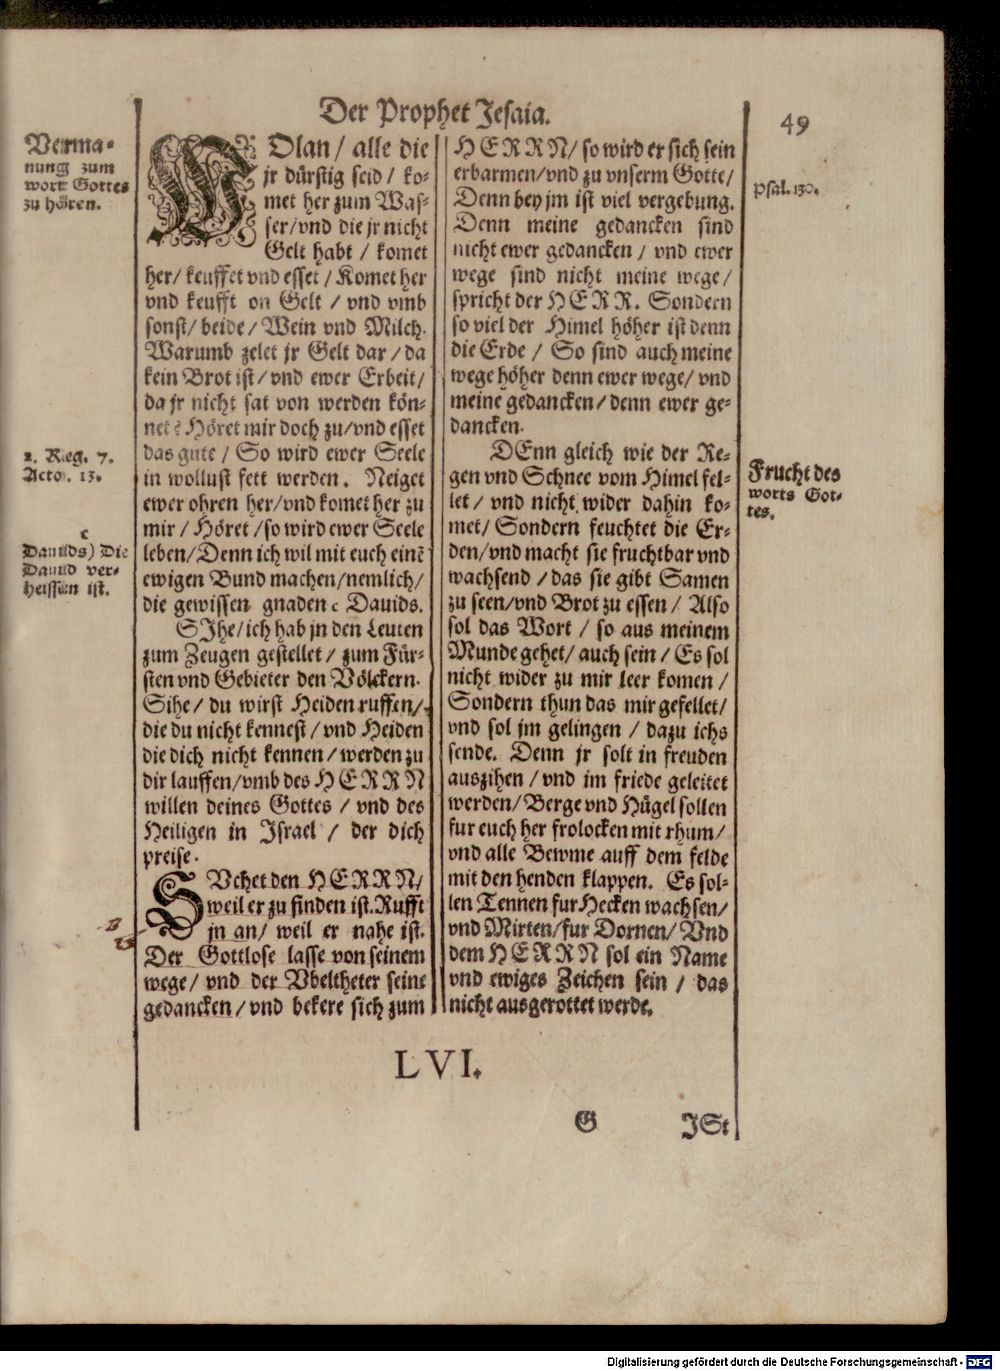 Der Prophet Jesaia.
49
Verma-
nung zum
wort Gottes
zu hören.
WOlan / alle die
jr dürstig seid / ko-
met her zum Was-
ser / vnd die jr nicht
Gelt habt / komet
her / keuffet vnd esset / Komet her
vnd keufft on Gelt / vnd vmb
sonst / beide / Wein vnd Milch.
Warumb zelet jr Gelt dar / da
kein Brot ist / vnd ewer Erbeit /
da jr nicht sat von werden kön-
net? Höret mir doch zu / vnd esset
das gute / So wird ewer Seele
in wollust fett werden. Neiget
ewer ohren her / vnd komet her zu
mir / Höret / so wird ewer Seele
leben / Denn ich wil mit euch einē
ewigen Bund machen / nemlich /
die gewissen gnaden c Dauids.
SIhe / ich hab jn den Leuten
zum Zeugen gestellet / zum Für-
sten vnd Gebieter den Völckern.
Sihe / du wirst Heiden ruffen /
die du nicht kennest / vnd Heiden
die dich nicht kennen / werden zu
dir lauffen / vmb des HERRN
willen deines Gottes / vnd des
Heiligen in Israel / der dich
preise.
SVchet den HERRN /
weil er zu finden ist. Rufft
jn an / weil er nahe ist.
Der Gottlose lasse von seinem
wege / vnd der Vbeltheter seine
gedancken / vnd bekere sich zum
2. Reg. 7.
Acto. 13.
c
Dauids) Die
Dauid ver-
heissen ist.
HERRN / so wird er sich sein
erbarmen / vnd zu vnserm Gotte /
Denn bey jm ist viel vergebung.
Denn meine gedancken sind
nicht ewer gedancken / vnd ewer
wege sind nicht meine wege /
spricht der HERR. Sondern
so viel der Himel höher ist denn
die Erde / So sind auch meine
wege höher denn ewer wege / vnd
meine gedancken / denn ewer ge-
dancken.
DEnn gleich wie der Re-
gen vnd Schnee vom Himel fel-
let / vnd nicht wider dahin ko-
met / Sondern feuchtet die Er-
den / vnd macht sie fruchtbar vnd
wachsend / das sie gibt Samen
zu seen / vnd Brot zu essen / Also
sol das Wort / so aus meinem
Munde gehet / auch sein / Es sol
nicht wider zu mir leer komen /
Sondern thun das mir gefellet /
vnd sol jm gelingen / dazu ichs
sende. Denn jr solt in freuden
auszihen / vnd im friede geleitet
werden / Berge vnd Hügel sollen
fur euch her frolocken mit rhum /
vnd alle Bewme auff dem felde
mit den henden klappen. Es sol-
len Tennen fur Hecken wachsen /
vnd Mirten / fur Dornen / Vnd
dem HERRN sol ein Name
vnd ewiges Zeichen sein / das
nicht ausgerottet werde.
Psal. 130.
Frucht des
worts Got-
tes.
LVI.
G
JSt
Digitalisierung gefördert durch die Deutsche Forschungsgemeinschaft - DFG